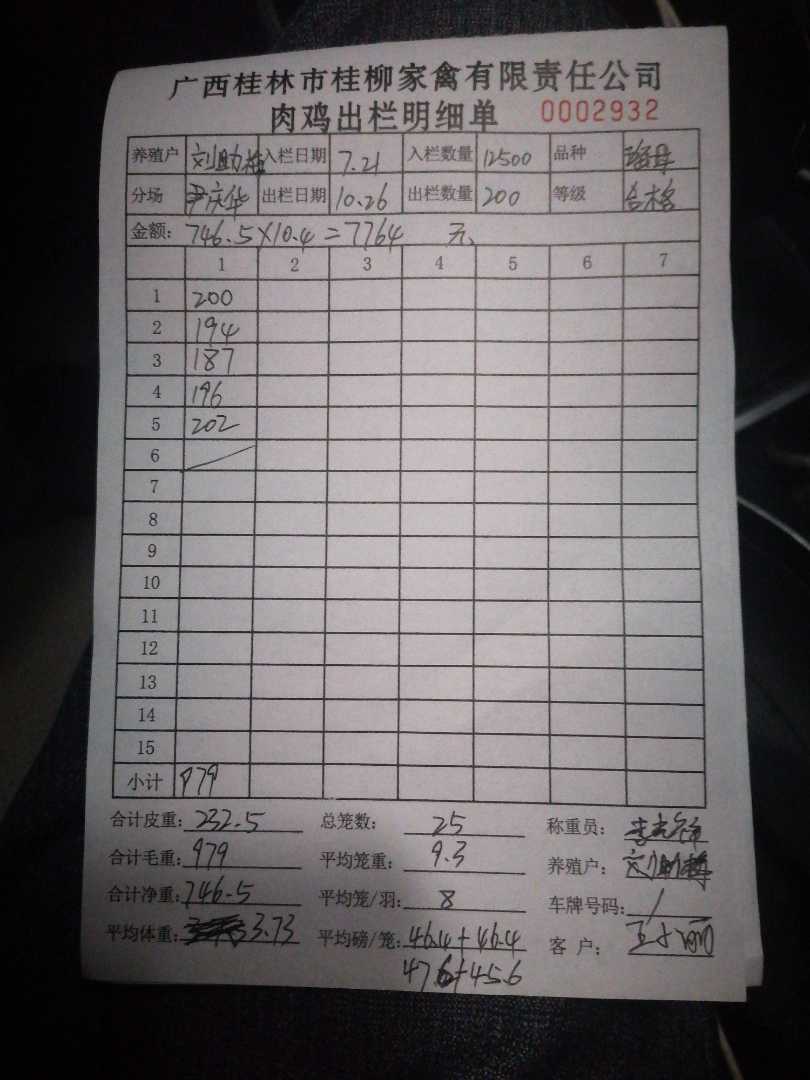 广西桂林市桂柳家禽有限责任公司
肉鸡出栏明细单 0002932
养殖户 刘助 入栏日期 7.21 入栏数量 12500 品种
分场 尹庆华 出栏日期 10.26 出栏数量 200 等级 合格
金额: 746.5×10.4=7764 元
1 2 3 4 5 6 7
1 200
2 194
3 187
4 196
5 202
6
7
8
9
10
11
12
13
14
15
小计 979
合计皮重: 232.5 总笼数: 25 称重员:
合计毛重: 979 平均笼重: 9.3 养殖户: 刘助
合计净重: 746.5 平均笼/羽: 8 车牌号码: /
平均体重: 3.73 平均磅/笼: 46.4+46.4 客户:
47.6+45.6